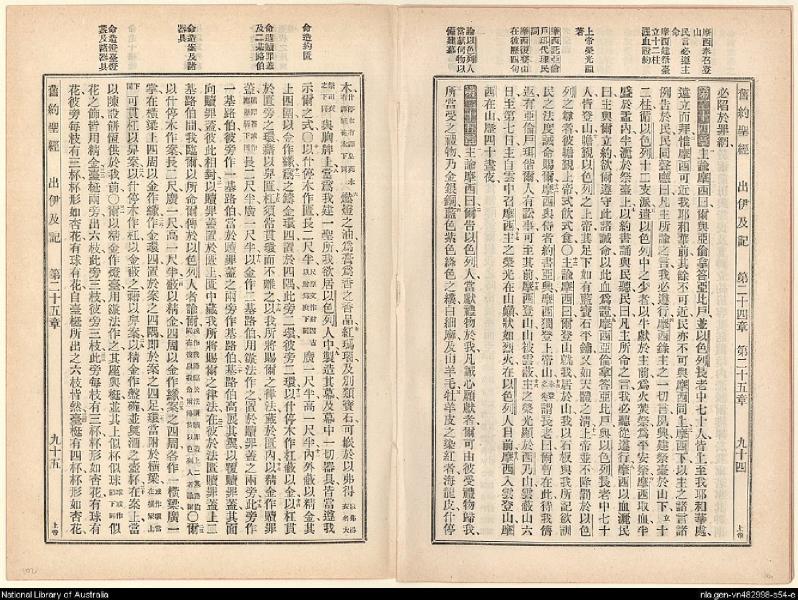 舊約聖經 出伊及記 第二十四章 第二十五章 九十四 上帝
摩西奉召登山
民言必遵主命
摩西建祭臺立十二柱
灑血設約
上帝榮光顯著
摩西託亞倫戶珥代理民詞
摩西復登山在彼歷四旬
諭以色列人當獻何物以備建幕
必陷於罪網
第二十四章 主諭摩西曰爾與亞倫拿答亞比戶並以色列長老中七十人皆上至我耶和華處
遠立而拜惟摩西可近我耶和華前其餘不可近民亦不可與摩西同上摩西下以主之諸言諸
例告於民民同聲應曰凡主所諭之言我必遵行摩西錄主之一切言夙興建祭臺於山下立十
二柱循以色列十二支派遣以色列中之少者以牛獻於主前為火焚祭為平安祭摩西取血半
盛於盤內半灑於祭臺上以約書誦與民聽民曰凡主所命之言我必聽從遵行摩西以血灑民
曰主與爾立約欲爾遵守此諸誡命以此血為證摩西亞倫拿答亞比戶與以色列長老中七十
人皆登山瞻覲以色列之上帝其足下如有藍寶石平鋪又如天體之清上帝並不降罰於以色
列之尊者彼瞻覲上帝式飲式食○主諭摩西曰爾登山就我居於山我以石板與我所記欲訓
民之法度誡命賜爾摩西與侍者約書亞興摩西獨登上帝山謂長老曰爾曹在此待我儕
返有亞倫戶珥偕爾人有訟事可至其前摩西登山山被雲蔽主之榮光顯於西乃山雲蔽山六
日主第七日自雲中召摩西主之榮光在山巔狀如烈火在以色列人目前摩西入雲登山摩
西在山歷四十晝夜
第二十五章 主諭摩西曰告以色列人當獻禮物於我凡誠心願獻者爾可由彼受禮物歸我
所當受之禮物乃金銀銅藍色紫色絳色之縷白細麻及山羊毛牡羊皮之染紅者海龍皮什停
命造約匱
命造贖罪蓋及二基路伯
命造案及諸器具
命造燈臺燈盞及諸器具
木 燃燈之油為膏為香之香品紅瑪瑙及別類寶石可嵌於以弗得
與胸牌上當為我建一聖所我欲居以色列人中製造其幕及幕中一切器具皆當遵我
示爾之式○以什停木作匱長二尺半 廣一尺半高一尺半內外蔽以精金其
上四圍以金作緣為之鑄金環四置於四隅此旁二環彼旁二環以什停木作杠蔽以金以杠貫
於匱旁之環為以舁匱杠須常貫環而不離之以我所將賜爾之律法藏於匱內以精金作贖罪
蓋 長二尺半廣一尺半以金作二基路伯用鎚法作之置於贖罪蓋之兩旁此旁作
一基路伯彼旁作一基路伯當於贖罪蓋之兩旁作基路伯基路伯高展其翼以覆贖罪蓋其面
向贖罪蓋彼此相對以贖罪蓋置於匱上匱中藏我所將賜爾之律法在彼於法匱贖罪蓋上二
基路伯間我臨爾以所命爾傳於以色列人者諭爾 ○爾
以什停木作案長二尺廣一尺高一尺半蔽以精金四周以金作緣案之四周各作一橫梁廣一
掌在橫梁上四周以金作緣作金環四置於案之四隅即於案之四足環當附於橫梁
可貫杠以舁案以什停木作杠蔽之以金以舁案以精金作盤碗並奠酒之壺杯在案上當
以陳設餅恆供於我前○爾以精金作燈臺用鎚法作之其座與榦並其上似杯 似
花之飾皆用精金臺榦兩旁出六枝此旁三枝彼旁三枝此旁每枝有三杯杯形如杏花有球有
花彼旁每枝有三杯杯形如杏花有球有花自臺榦所出之六枝皆然臺榦有四杯杯形如杏花
舊約聖經 出伊及記 第二十五章 九十五 上帝
National Library of Australia
nla.gen-vn482998-s54-e